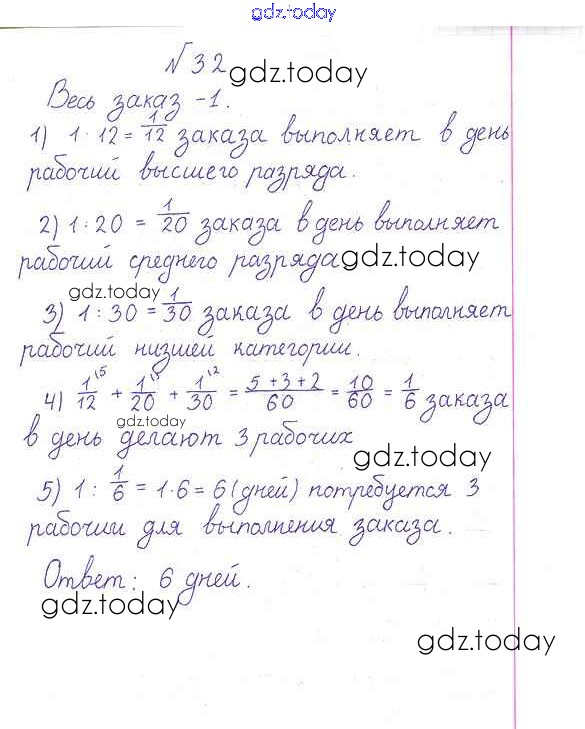 gdz.today
№32 gdz.today
Весь заказ -1.
1) 1·12=1/12 заказа выполняет в день
рабочий высшего разряда.
2) 1:20 = 1/20 заказа в день выполняет
рабочий среднего разряда gdz.today
gdz.today
3) 1:30 = 1/30 заказа в день выполняет
рабочий низшей категории.
4) 1/12 ⁵⁾ + 1/20 ³⁾ + 1/30 ² = 5+3+2/60 = 10/60 = 1/6 заказа
gdz.today
в день делают 3 рабочих
gdz.today
5) 1: 1/6 = 1·6 = 6 (дней) потребуется 3
рабочим для выполнения заказа.
Ответ: 6 дней.
gdz.today
gdz.today